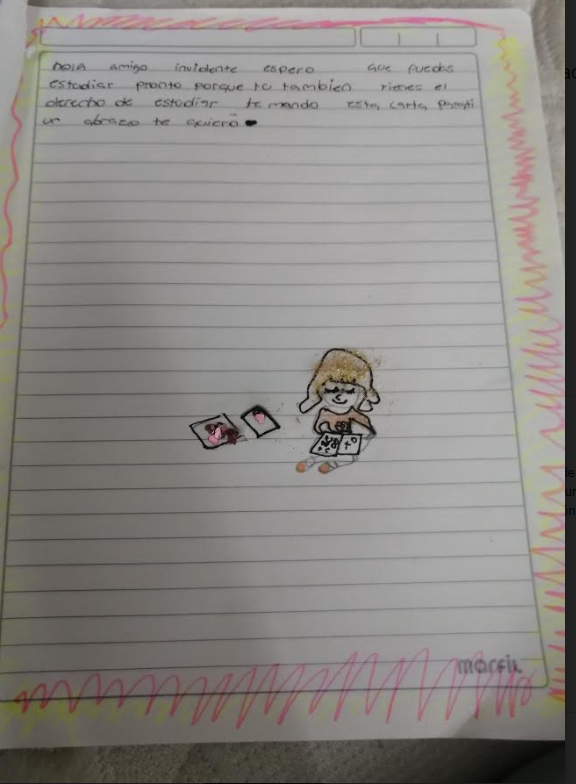 hola amigo invidente espero que puedas
estudiar pronto porque tu tambien tienes el
derecho de estudiar te mando esta carta para ti
un abrazo te quiero